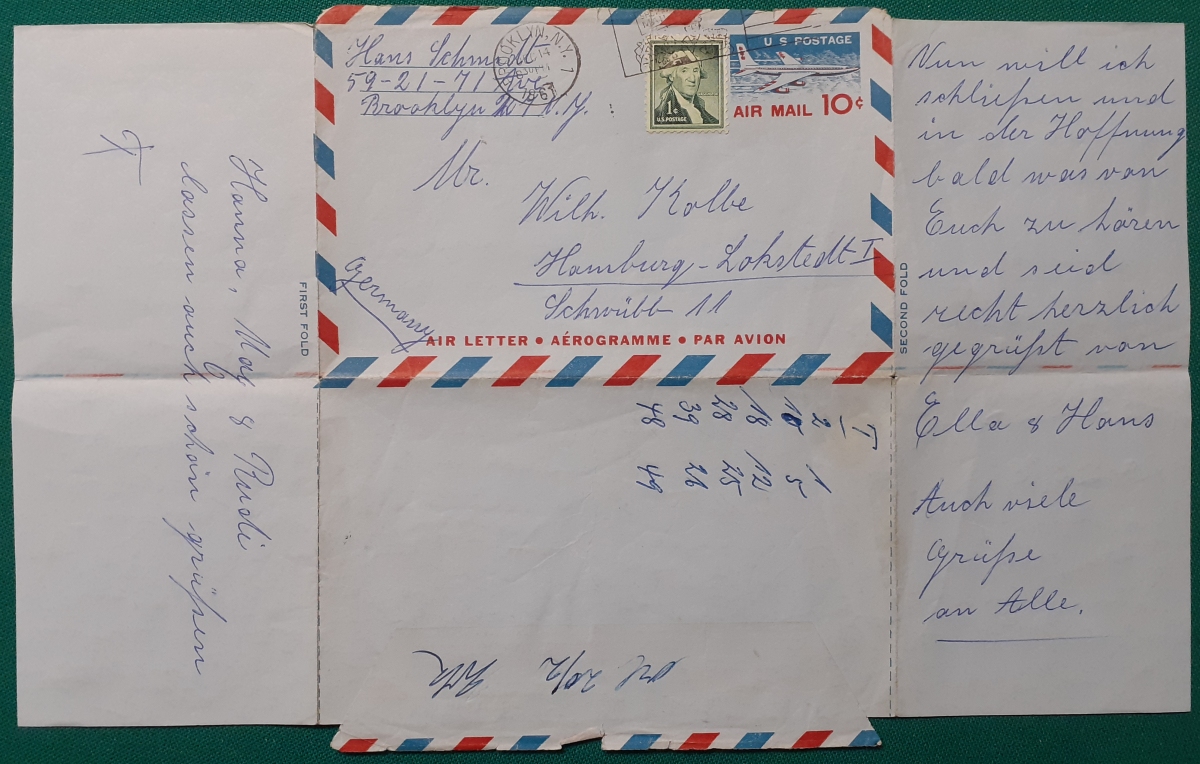 Hans Schmidt
59-21-71 Ave
Brooklyn N.Y.
BROOKLYN, N.Y. 1
1963
1¢
U.S. POSTAGE
U S POSTAGE
AIR MAIL 10¢
Mr.
Wilh. Kolbe
Hamburg-Lokstedt I
Schwübb 11
Germany
AIR LETTER • AÉROGRAMME • PAR AVION
FIRST FOLD
SECOND FOLD
Nun will ich
schließen und
in der Hoffnung
bald was von
Euch zu hören
und seid
recht herzlich
gegrüßt von
Ella & Hans
Auch viele
Grüße
an Alle.
Hanna, May & Rudi
lassen auch schön grüßen
I
2 1
10 5
18 12
28 25
39 26
48 49
20/2